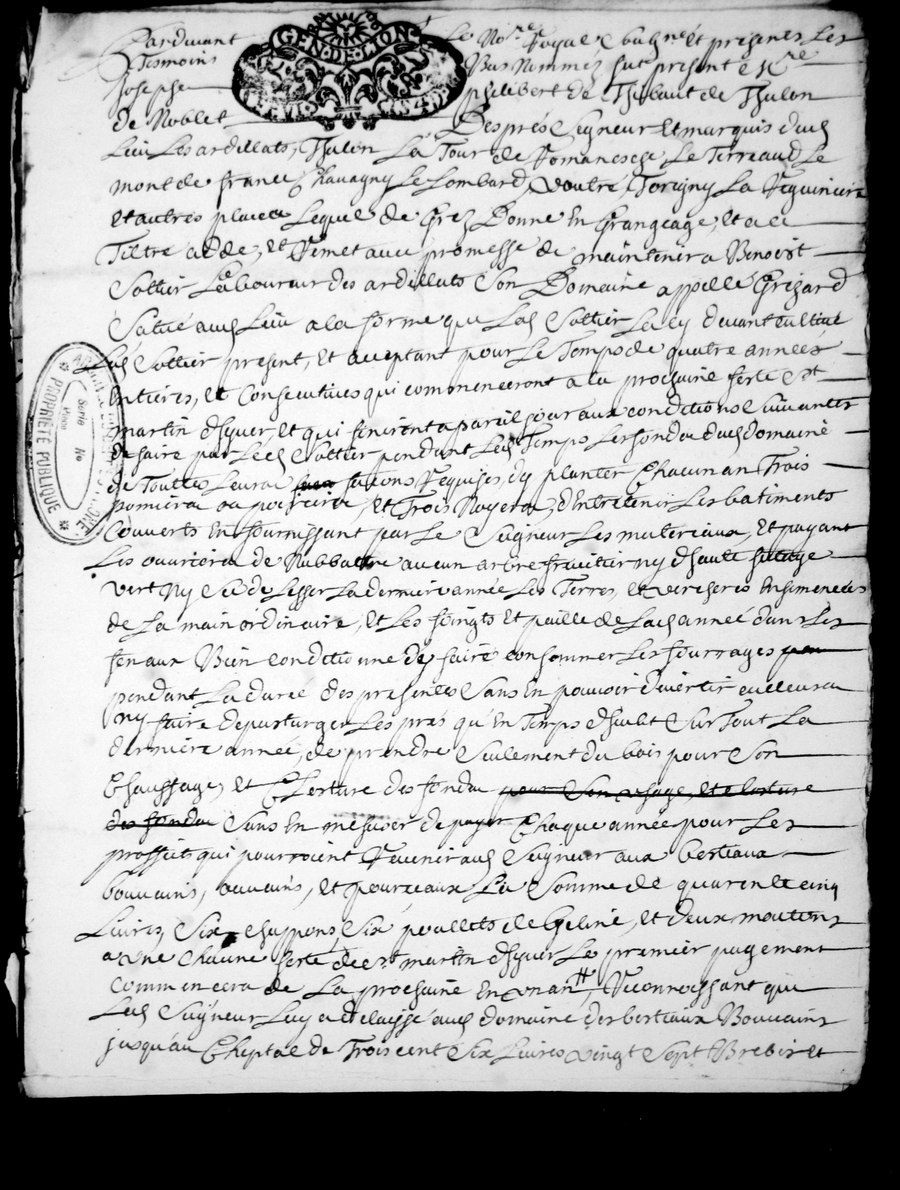 Pardevant Le No.re Royal soubsigné et presents Les
Tesmoins Bas Nommez fut present Mre
Joseph philebert de Thibaut de Thulon
GEN·DE·LION
de Noblet Després Seigneur Et marquis dud
Lieu Les ardillats, Thulon La Tour de Romanesche Le Terreaud Le
mont de france Chavagny Le Lombard, Vautré Torigny La
et autres places Lequel de Grez Donne En Grangeage, et a ce
Tiltre cedde, et Remet avec promesse de maintenir a Benoist
Sottier Laboureur des ardillats Son Domaine appellé Grizard
Scitué aud Lieu a la forme que Led Sottier La cy devant cultivé
Led Sottier present, et acceptant pour Le Temps de quatre années
Entieres, et Consecutives qui commenceront a la prochaine feste St
martin dhyver, et qui finiront a pareil jour aux conditions Suivantes
de faire par Led Sottier pendant Led Temps Les fonds dud domaine
de Toutes Leurs façons Requises, dy planter Chacun an Trois
pomiers ou poiriers, et Trois Noyers, dEntretenir Les batiments
Couverts En fournissant par Le Seigneur Les materiaux, Et payant
Les ouvriers de N'abbatre aucun arbre fruitier ny dhaute futtage
vert Ny Sec de Lesser La derniere année Les Terres, et vercheres Ensemencées
de La main ordinaire, et Les foings et paille de Lad année dans Les
fenaux Bien conditionné de faire consommer Les fourrages
pendant La durée des presentes Sans En pouvoir divertir ailleurs
ny faire depasturger Les prés qu'En Temps dhu Et Sur Tout La
derniere année, de prendre Seulement du bois pour Son
Chauffage, et Closture des fonds pour Son usage, et closture
des fonds Sans En mesuser de payer Chaque année pour Les
proffits qui pourroient Revenir aud Seigneur aux bestiaux
bouvains, ouvains, et pourceaux La Somme de quarente cinq
Livres, Six chappons, Six poullets de Geline, et deux moutons
a Une Chacune feste de St martin dhyver Le premier payement
Commencera de La prochaine En Un an, Reconnoissant que
Led Seigneur Luy a delaissé aud domaine des bestiaux Bouvains
jusqu'au Cheptal de Trois cent Six Livres vingt Sept Brebis et
PROPRIÉTÉ PUBLIQUE
Serie
No